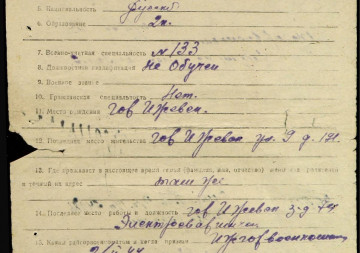 5. Национальность русский
6. Образование 2 кл.
7. Военно-учетная специальность № 133
8. Должностная квалификация Не обучен
9. Воинское звание
10. Гражданская специальность Нет.
11. Место рождения гор Ижевск.
12. Постоянное место жительства гор Ижевск ул. 9 д. 191
13. Где проживает в настоящее время семья (фамилия, имя, отчество) жены или родителей
и точный их адрес
там же
14. Последнее место работы и должность гор Ижевск з-д 74
Электросварщик
15. Каким райгорвоенкоматом и когда призван Ижгорвоенкомат